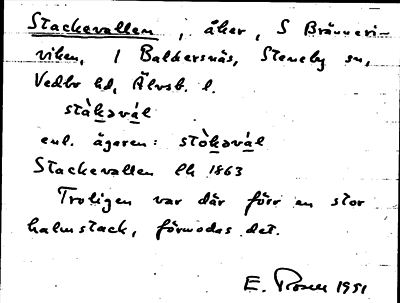 Stackevallen, åker, S Bränneri-
viken, / Baldersnäs, Steneby sn,
Vedbo hd, Älvsb. l.
stàkəvál
enl. ägaren: stòkəvál
Stackevallen Lk 1863
Troligen var där förr en stor
halmstack, förmodas det.
E. Rosell 1951